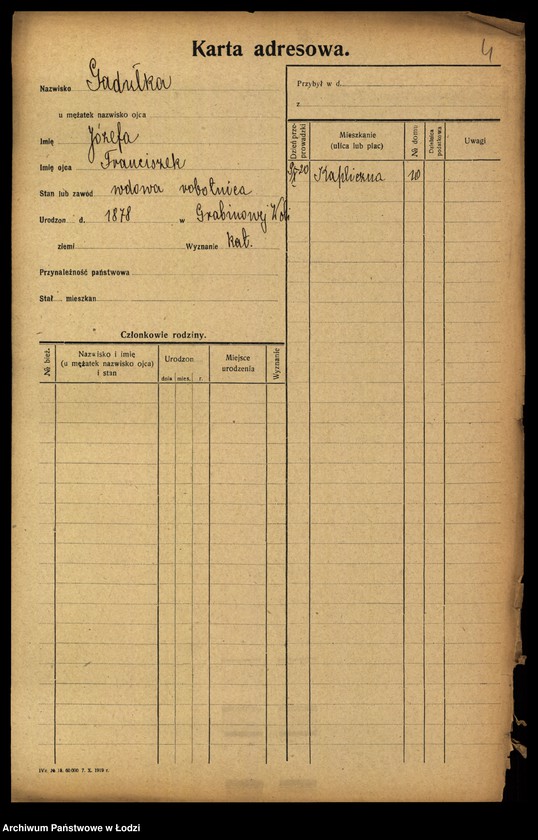 Karta adresowa.
4
Nazwisko Gadułka
u mężatek nazwisko ojca
Imię Józefa
Imię ojca Franciszek
Stan lub zawód wdowa robotnica
Urodzon d. 1878 w Grabinowej Woli
ziemi Wyznanie kat.
Przynależność państwowa
Stał. mieszkan
Członkowie rodziny.
№ bież.
Nazwisko i imię
(u mężatek nazwisko ojca)
i stan
Urodzon
dnia mies. r.
Miejsce
urodzenia
Wyznanie
Przybył w d.
z
Dzień prze-
prowadzki
Mieszkanie
(ulica lub plac)
№ domu
Dzielnica
podatkowa
Uwagi
20 Kapliczna 10
60000 7. X. 1919 r.
Archiwum Państwowe w Łodzi